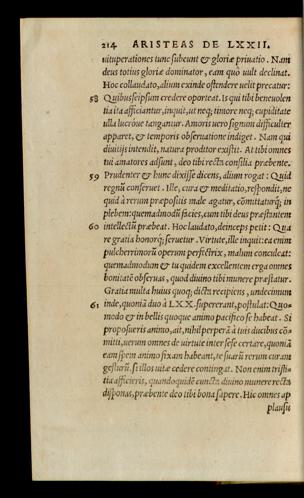 214 ARISTEAS DE LXXII.
uituperationes tunc subeunt & gloriæ priuatio. Nam
deus totius gloriæ dominator, eam quò uult declinat.
Hoc collaudato, alium exinde ostendere uelit precatur:
58 Quibus seipsum credere oporteat. Is qui tibi beneuolen
tia ita afficiantur, inquit, ut neq; timore neq; cupiditate
ulla lucróue tangantur. Amoris uero signum difficulter
apparet, & temporis obseruatione indiget. Nam qui
diuitijs intendit, natura proditor existit. At tibi omnes
tui amatores adsunt, deo tibi recta consilia præbente.
59 Prudenter & hunc dixisse dicens, alium rogat: Quid
regnū conseruet. Ille, cura & meditatio, respondit, ne
quid à rerum præpositis male agatur, cōmittaturq́; in
plebem: quemadmodū facies, cum tibi deus præstantem
60 intellectū præbeat. Hoc laudato, deinceps petit: Qua
re gratia honorq́; seruetur. Virtute, ille inquit: ea enim
pulcherrimorū operum perfectrix, malum conculcat:
quemadmodum & tu quidem excellentem erga omnes
bonitatē obseruas, quod diuino tibi munere præstatur.
Gratia multa huius quoq; dictū recipiens, undecimum
61 inde, quoniā duo à LXX. supererant, postulat: Quo-
modo & in bellis quoque animo pacifico se habeat. Si
proposueris animo, ait, nihil perperā à tuis ducibus cō-
mitti, uerum omnes de uirtute inter sese certare, quoniā
eam spem animo fixam habeant, te suarū rerum curam
gesturū, si illos uitæ cedere contingat. Non enim tristi-
tia afficieris, quandoquidē cuncta diuino munere recta
disponas, præbente deo tibi bona sapere. Hic omnes ap
plausu